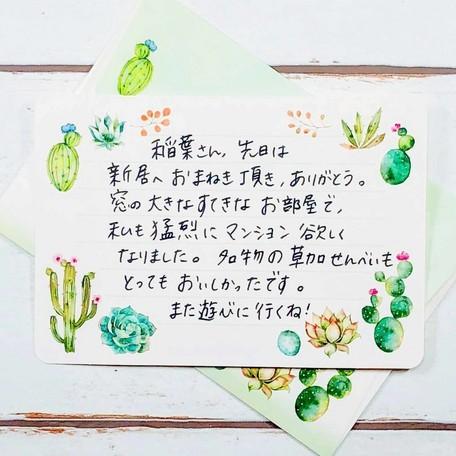 稲葉さん,先日は
新居へおまねき頂き,ありがとう。
窓の大きなすてきなお部屋で,
私も猛烈にマンション欲しく
なりました。名物の草加せんべいも
とってもおいしかったです。
また遊びに行くね!